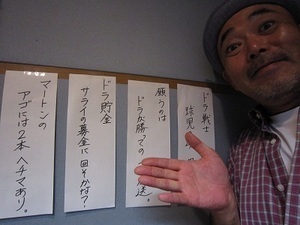 ドラ戦士
願うのは
ドラが勝っての 送。
ドラ貯金
サライの募金に 回そかな?
マートンの
アゴには2本 ヘチマあり。